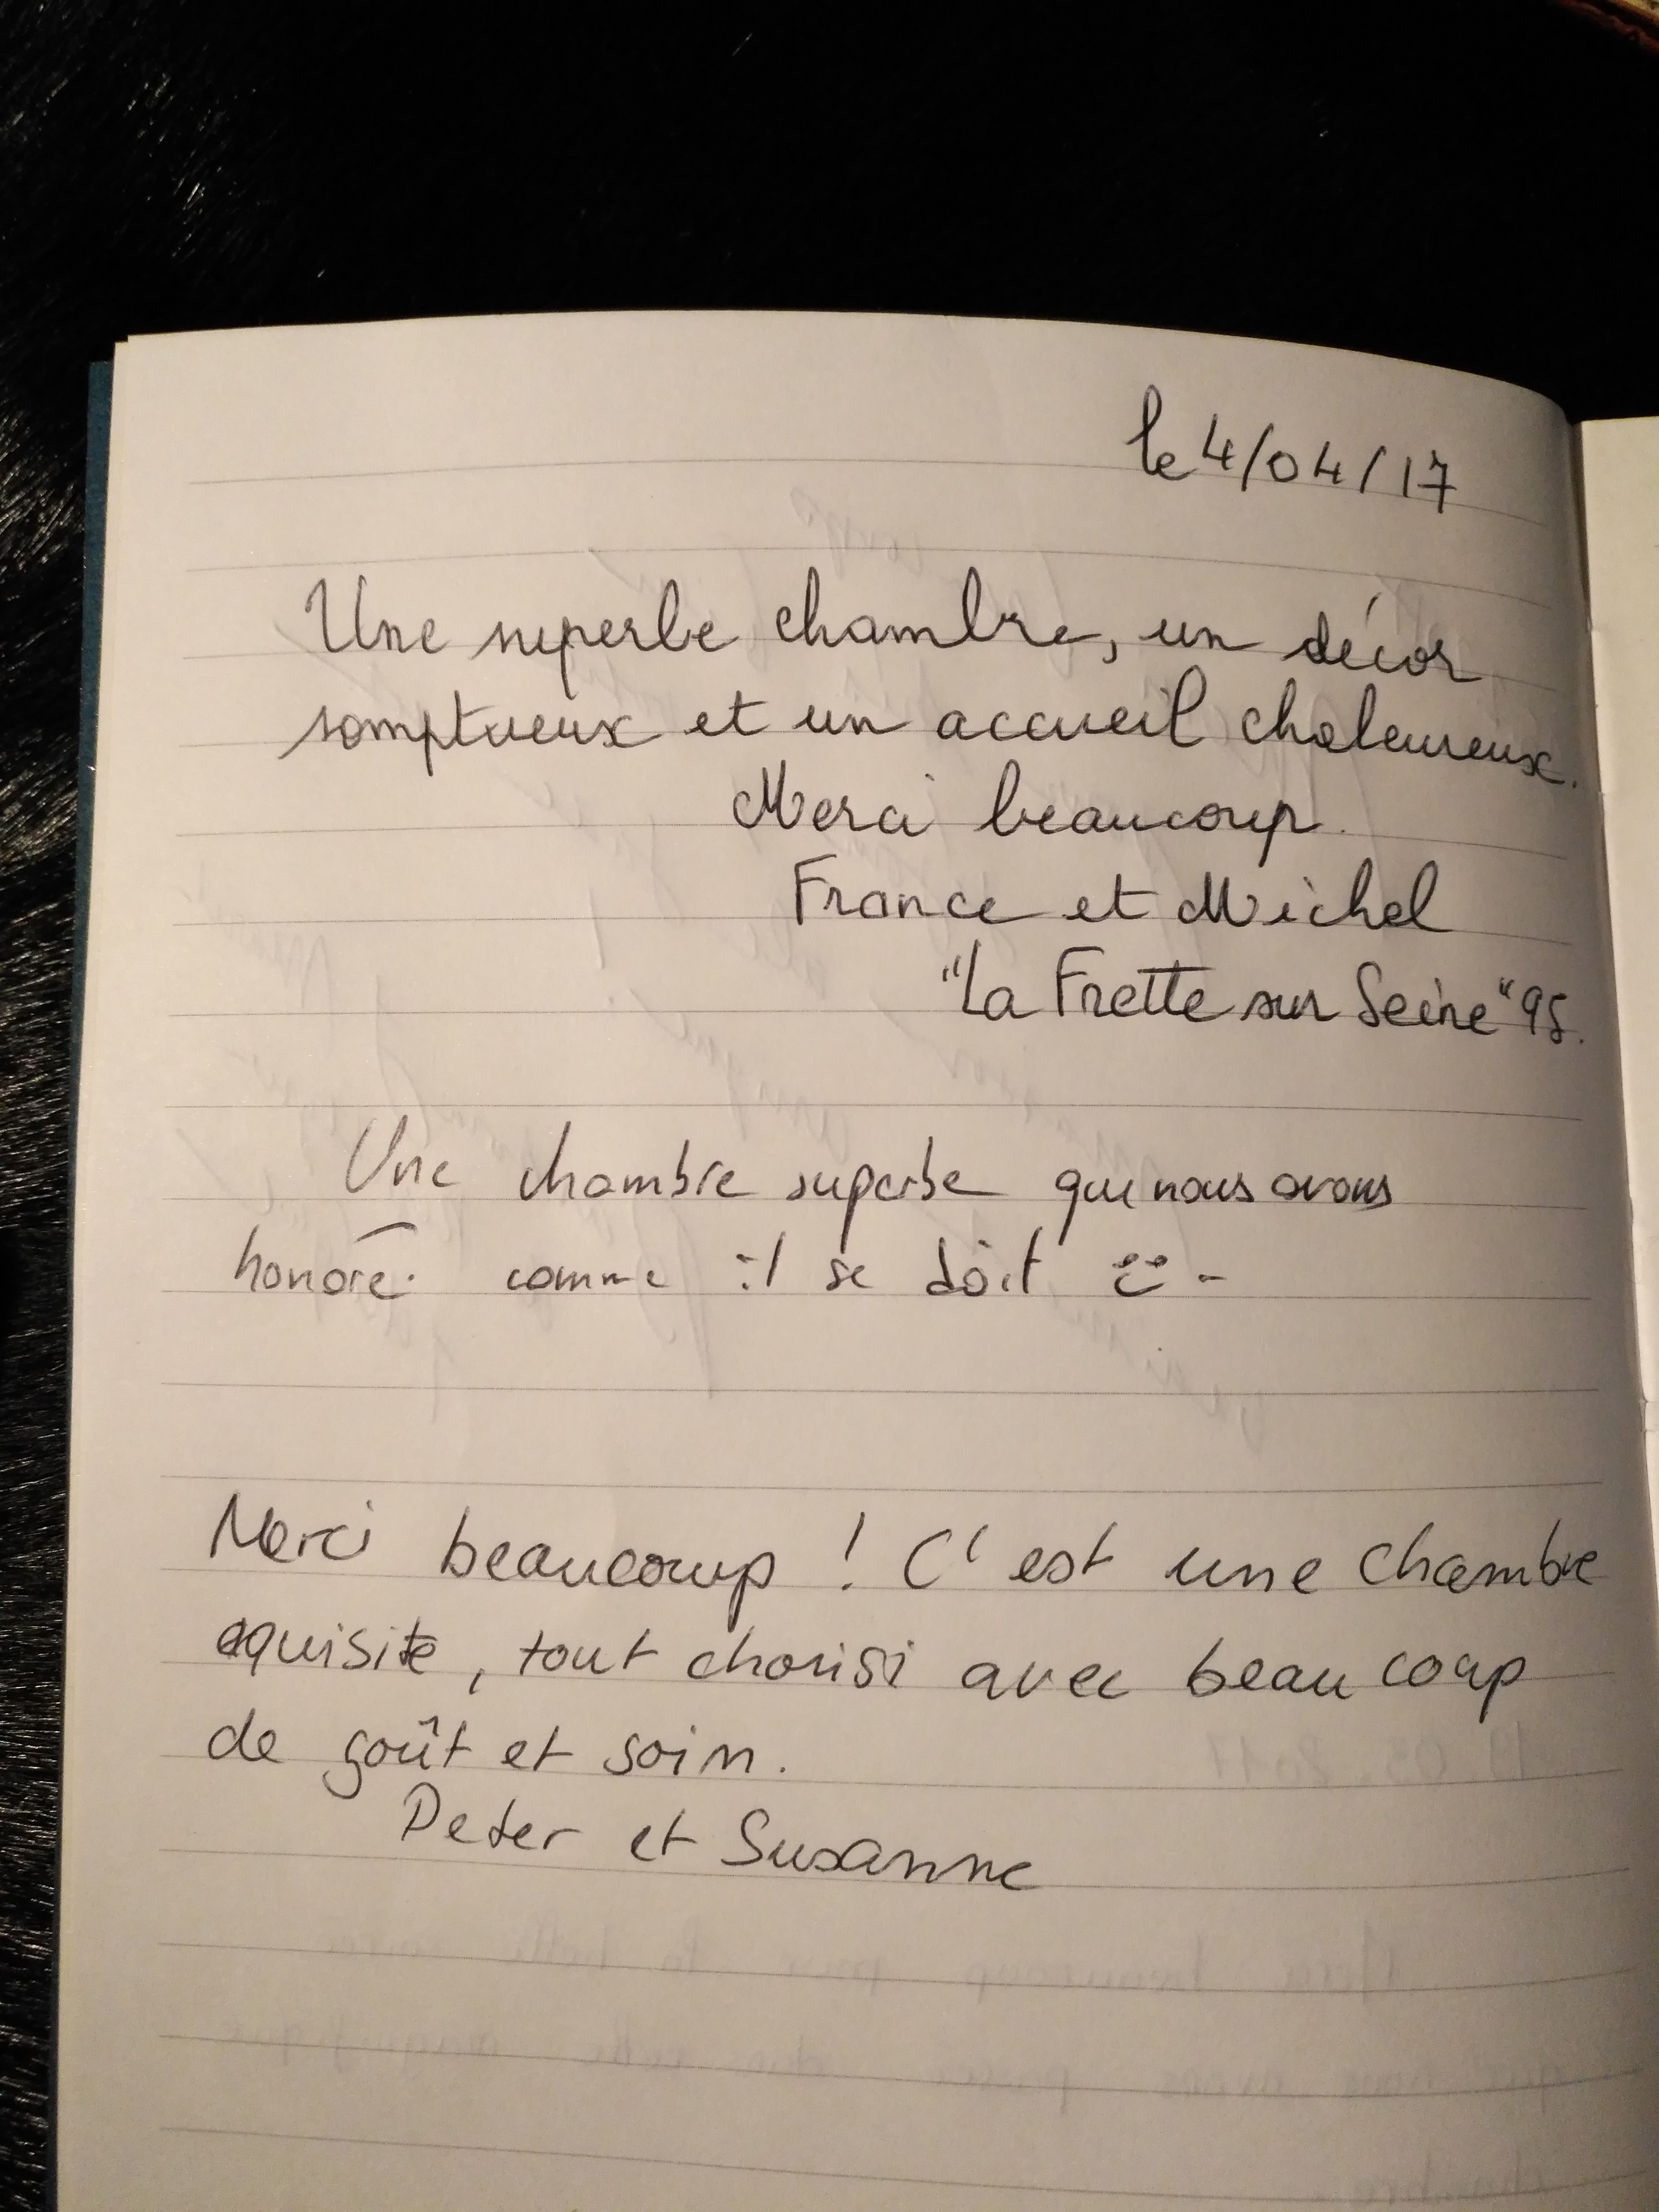 le 4/04/17
Une superbe chambre, un décor
somptueux et un accueil chaleureux.
Merci beaucoup.
France et Michel
"La Frette sur Seine" 95.
Une chambre superbe que nous avons
honoré comme il se doit
Merci beaucoup ! C'est une chambre
equisite, tout choisi avec beaucoup
de goût et soin.
Peter et Susanne